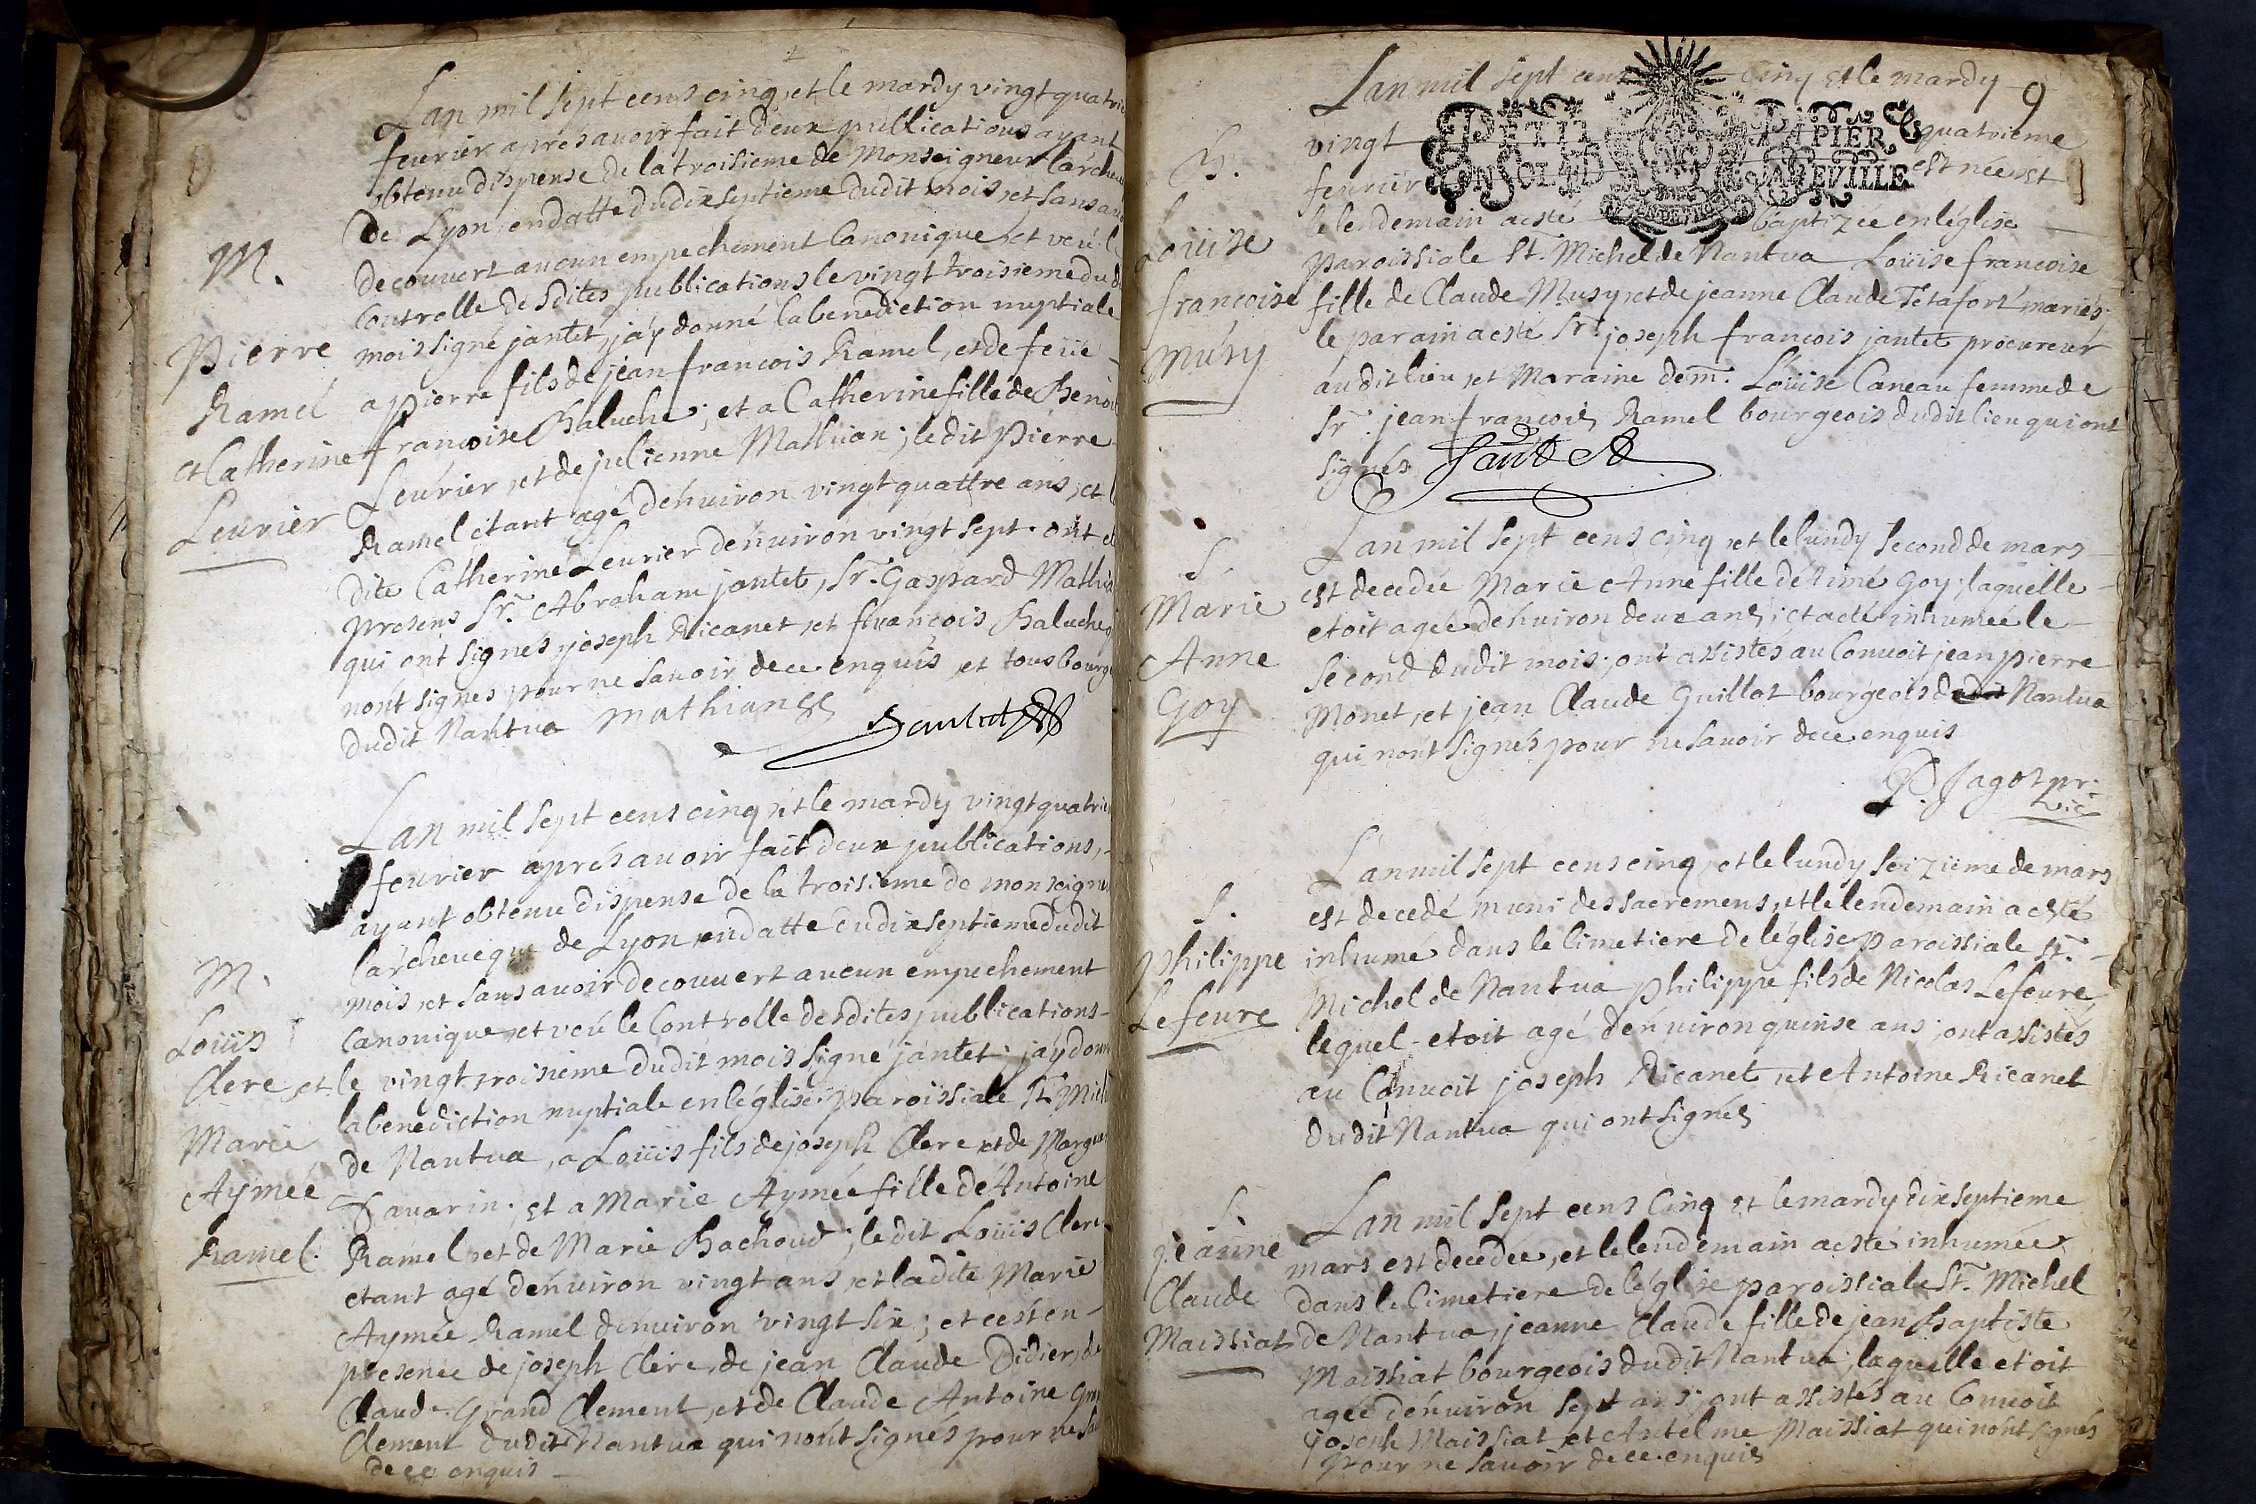 Lan mil sept cens cinq, et le mardy vingt quatrie
feurier aprés auoir fait deux publications ayant
obtenu dispense de la troisieme de Monseigneur larcheu
de Lyon, en datte du dix septieme dudit mois, et sans auoir
decouuert aucun empechement Canonique, et veû le
Controlle desdites publications le vingt troisieme dudit
mois signé jantet, j'ay donné la benediction nuptiale
M.
Pierre
Ramel
et Catherine
Leurier
a Pierre fils de jean francois Ramel, et de feüe
francoise Baluche; et a Catherine fille de Benoit
Leurier, et de julienne Mathian; ledit Pierre
Ramel étant agé d'enuiron vingt quattre ans, et la
dite Catherine Leurier d'enuiron vingt sept. ont eté
presens Sr. Abraham jantet, Sr. Gaspard Mathian
qui ont signés joseph Ricanet, et francois Baluche
n'ont signés pour ne sauoir de ce enquis et tous bourge
dudit Nantua Mathian
Jantet
Lan mil sept cens cinq, et le mardy vingt quatrie
feurier aprés auoir fait deux publications,
ayant obtenu dispense de la troisieme de monseigneu
larcheueque de Lyon en datte du dix septieme dudit
mois, et sans auoir decouuert aucun empechement
Canonique, et veû le Controlle desdites publications
M.
Loüis
Clere, et
Marie
Aymeé
Ramel.
le vingt troisieme dudit mois signé jantet; j'ay donné
la benediction nuptiale en l'église paroissiale St. Michel
de Nantua, a Loüis fils de joseph Clere et de Margue
Tauarin; et a Marie Aymeé fille de Antoine
Ramel, et de Marie Bachoud; ledit Loüis Clere
etant agé d'enuiron vingt ans, et ladite Marie
Aymeé Ramel d'enuiron vingt six; et ce est en
presence de joseph Clere, de jean Claude Didier, de
Claude Grand Clement, et de Claude Antoine Gra
Clement dudit Nantua qui n'ont signés pour ne sau
de ce enquis
9
Lan mil sept cens cinq et le mardy
vingt quatrieme
PETIT PAPIER
EN SOL LA FEVILLE
feurier est neé, et
le lendemain a esté baptizeé en l'église
B.
Loüise
francoise
Musy
paroissiale St. Michel de Nantua Loüise francoise
fille de Claude Musy, et de jeanne Claude Tetafort mariés;
le parain a esté Sr. joseph francois jantet procureur
audit lieu, et Maraine dem. Loüise Caneau femme de
Sr. jean francois Ramel bourgeois dudit lieu qui ont
signés Jantet
S.
Marie
Anne
Goy
Lan mil sept cens cinq, et le lundy second de mars
est decedeé Marie Anne fille d'Aimé Goy, laquelle
etoit ageé d'enuiron deux ans, et a eté inhumeé le
second dudit mois; ont assistés au Conuoit jean pierre
Monet, et jean Claude Guillot bourgeois dudit Nantua
qui n'ont signés pour ne sauoir de ce enquis
P. Jagot pr.
vic
S.
Philippe
Lefeure
Lan mil sept cens cinq, et le lundy seizieme de mars
est decedé muni des sacremens, et le lendemain a esté
inhumé dans le Cimetiere de l'église paroissiale St.
Michel de Nantua Philippe fils de Nicolas Lefeure,
lequel etoit agé d'enuiron quinse ans; ont assistés
au Conuoit joseph Ricanet, et Antoine Ricanet
dudit Nantua qui ont signés
S.
Jeanne
Claude
Maissiat
Lan mil sept cens cinq et le mardy dix septieme
mars est decedeé, et le lendemain a esté inhumeé
dans le Cimetiere de l'église paroissiale St. Michel
de Nantua, jeanne Claude fille de jean Baptiste
Maissiat bourgeois dudit Nantua, laquelle etoit
ageé d'enuiron sept ans; ont assistés au Conuoit
joseph Maissiat et Antelme Maissiat qui n'ont signés
pour ne sauoir de ce enquis